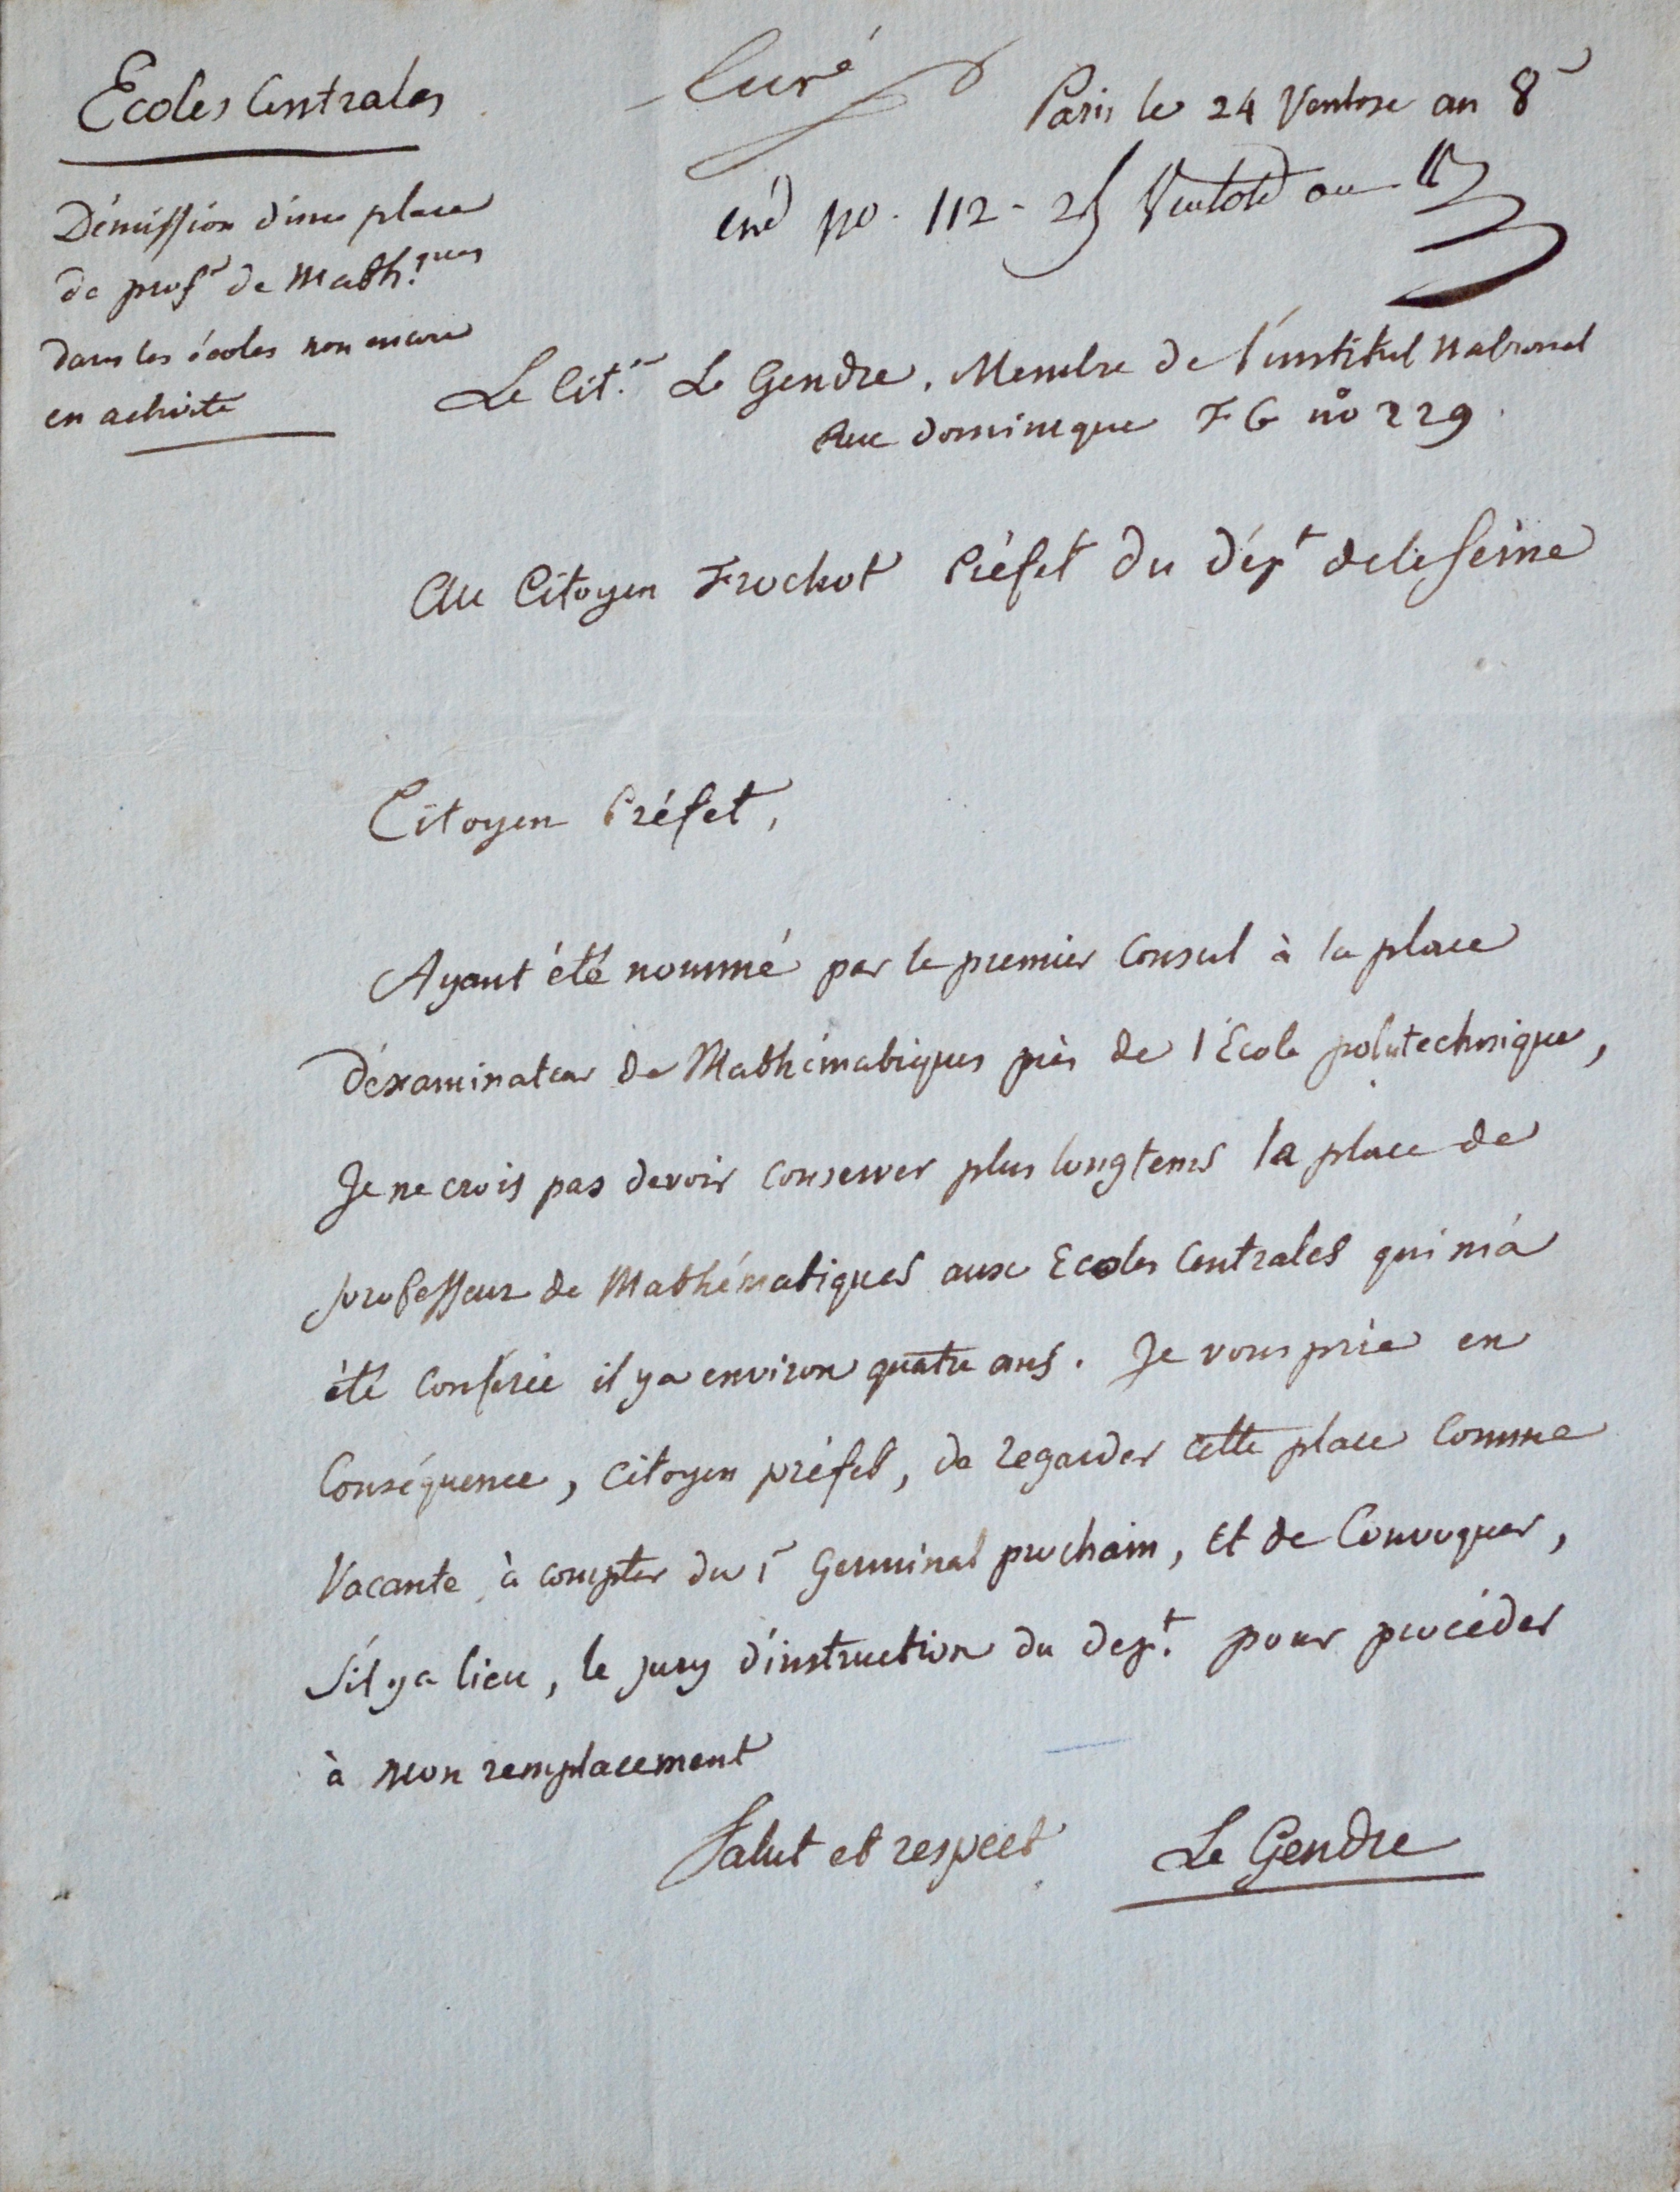 Ecoles Centrales
Paris le 24 Ventose an 8
enré no. 112 - 25 Ventose an
Démission d'une place
de profr de Math.ques
dans les écoles non encore
en activité
Le Cit.n Le Gendre, Membre de l'institut national
Rue dominique F G no 229
Au Citoyen Frochot Préfet du Dépt de la Seine
Citoyen Préfet,
Ayant été nommé par le premier Consul à la place
d'éxaminateur de Mathématiques près de l'Ecole polytechnique,
Je ne crois pas devoir conserver plus longtems la place de
professeur de Mathématiques aux Ecoles Centrales qui m'a
été conférée il y a environ quatre ans. Je vous prie en
Conséquence, citoyen préfet, de regarder cette place comme
Vacante à compter du 1r Germinal prochain, et de Convoquer,
s'il y a lieu, le jury d'instruction du dept. pour procéder
à mon remplacement
Salut et respect Le Gendre